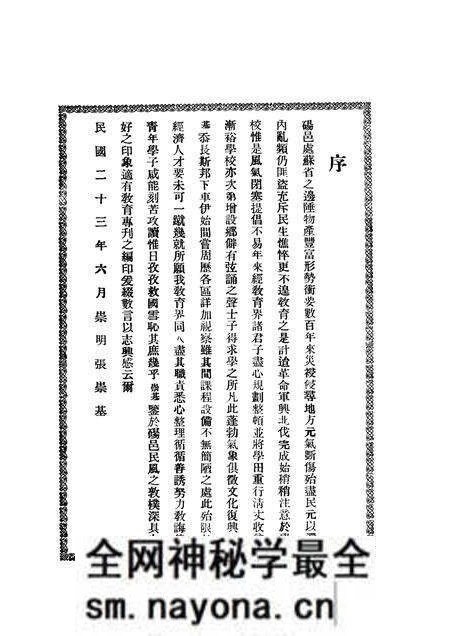 序
碭邑處蘇省之邊陲物產豐富形勢衝要數百年來災祲侵尋地方元氣斵傷殆盡民元以還
內亂頻仍匪盜充斥民生憔悴更不遑敎育之是計迨革命軍興北伐完成始稍稍注意於
校惟是風氣閉塞提倡不易年來經敎育界諸君子盡心規劃整頓並將學田重行淸丈收
漸裕學校亦次第增設鄉僻有弦誦之聲士子得求學之所凡此蓬勃氣象俱徵文化復興
基忝長斯邦下車伊始間嘗周歷各區詳加視察雖其間課程設備不無簡陋之處此殆限
經濟人才要未可一蹴幾就所願我敎育界同人盡其職責悉心整理循循善誘努力敎誨
靑年學子咸能刻苦攻讀惟日孜孜救國雪恥其庶幾乎崇基鑒於碭邑民風之敦樸深其
好之印象適有敎育專刊之編印爰綴數言以志興感云爾
民國二十三年六月崇明張崇基
全网神秘学最全
sm.nayona.cn